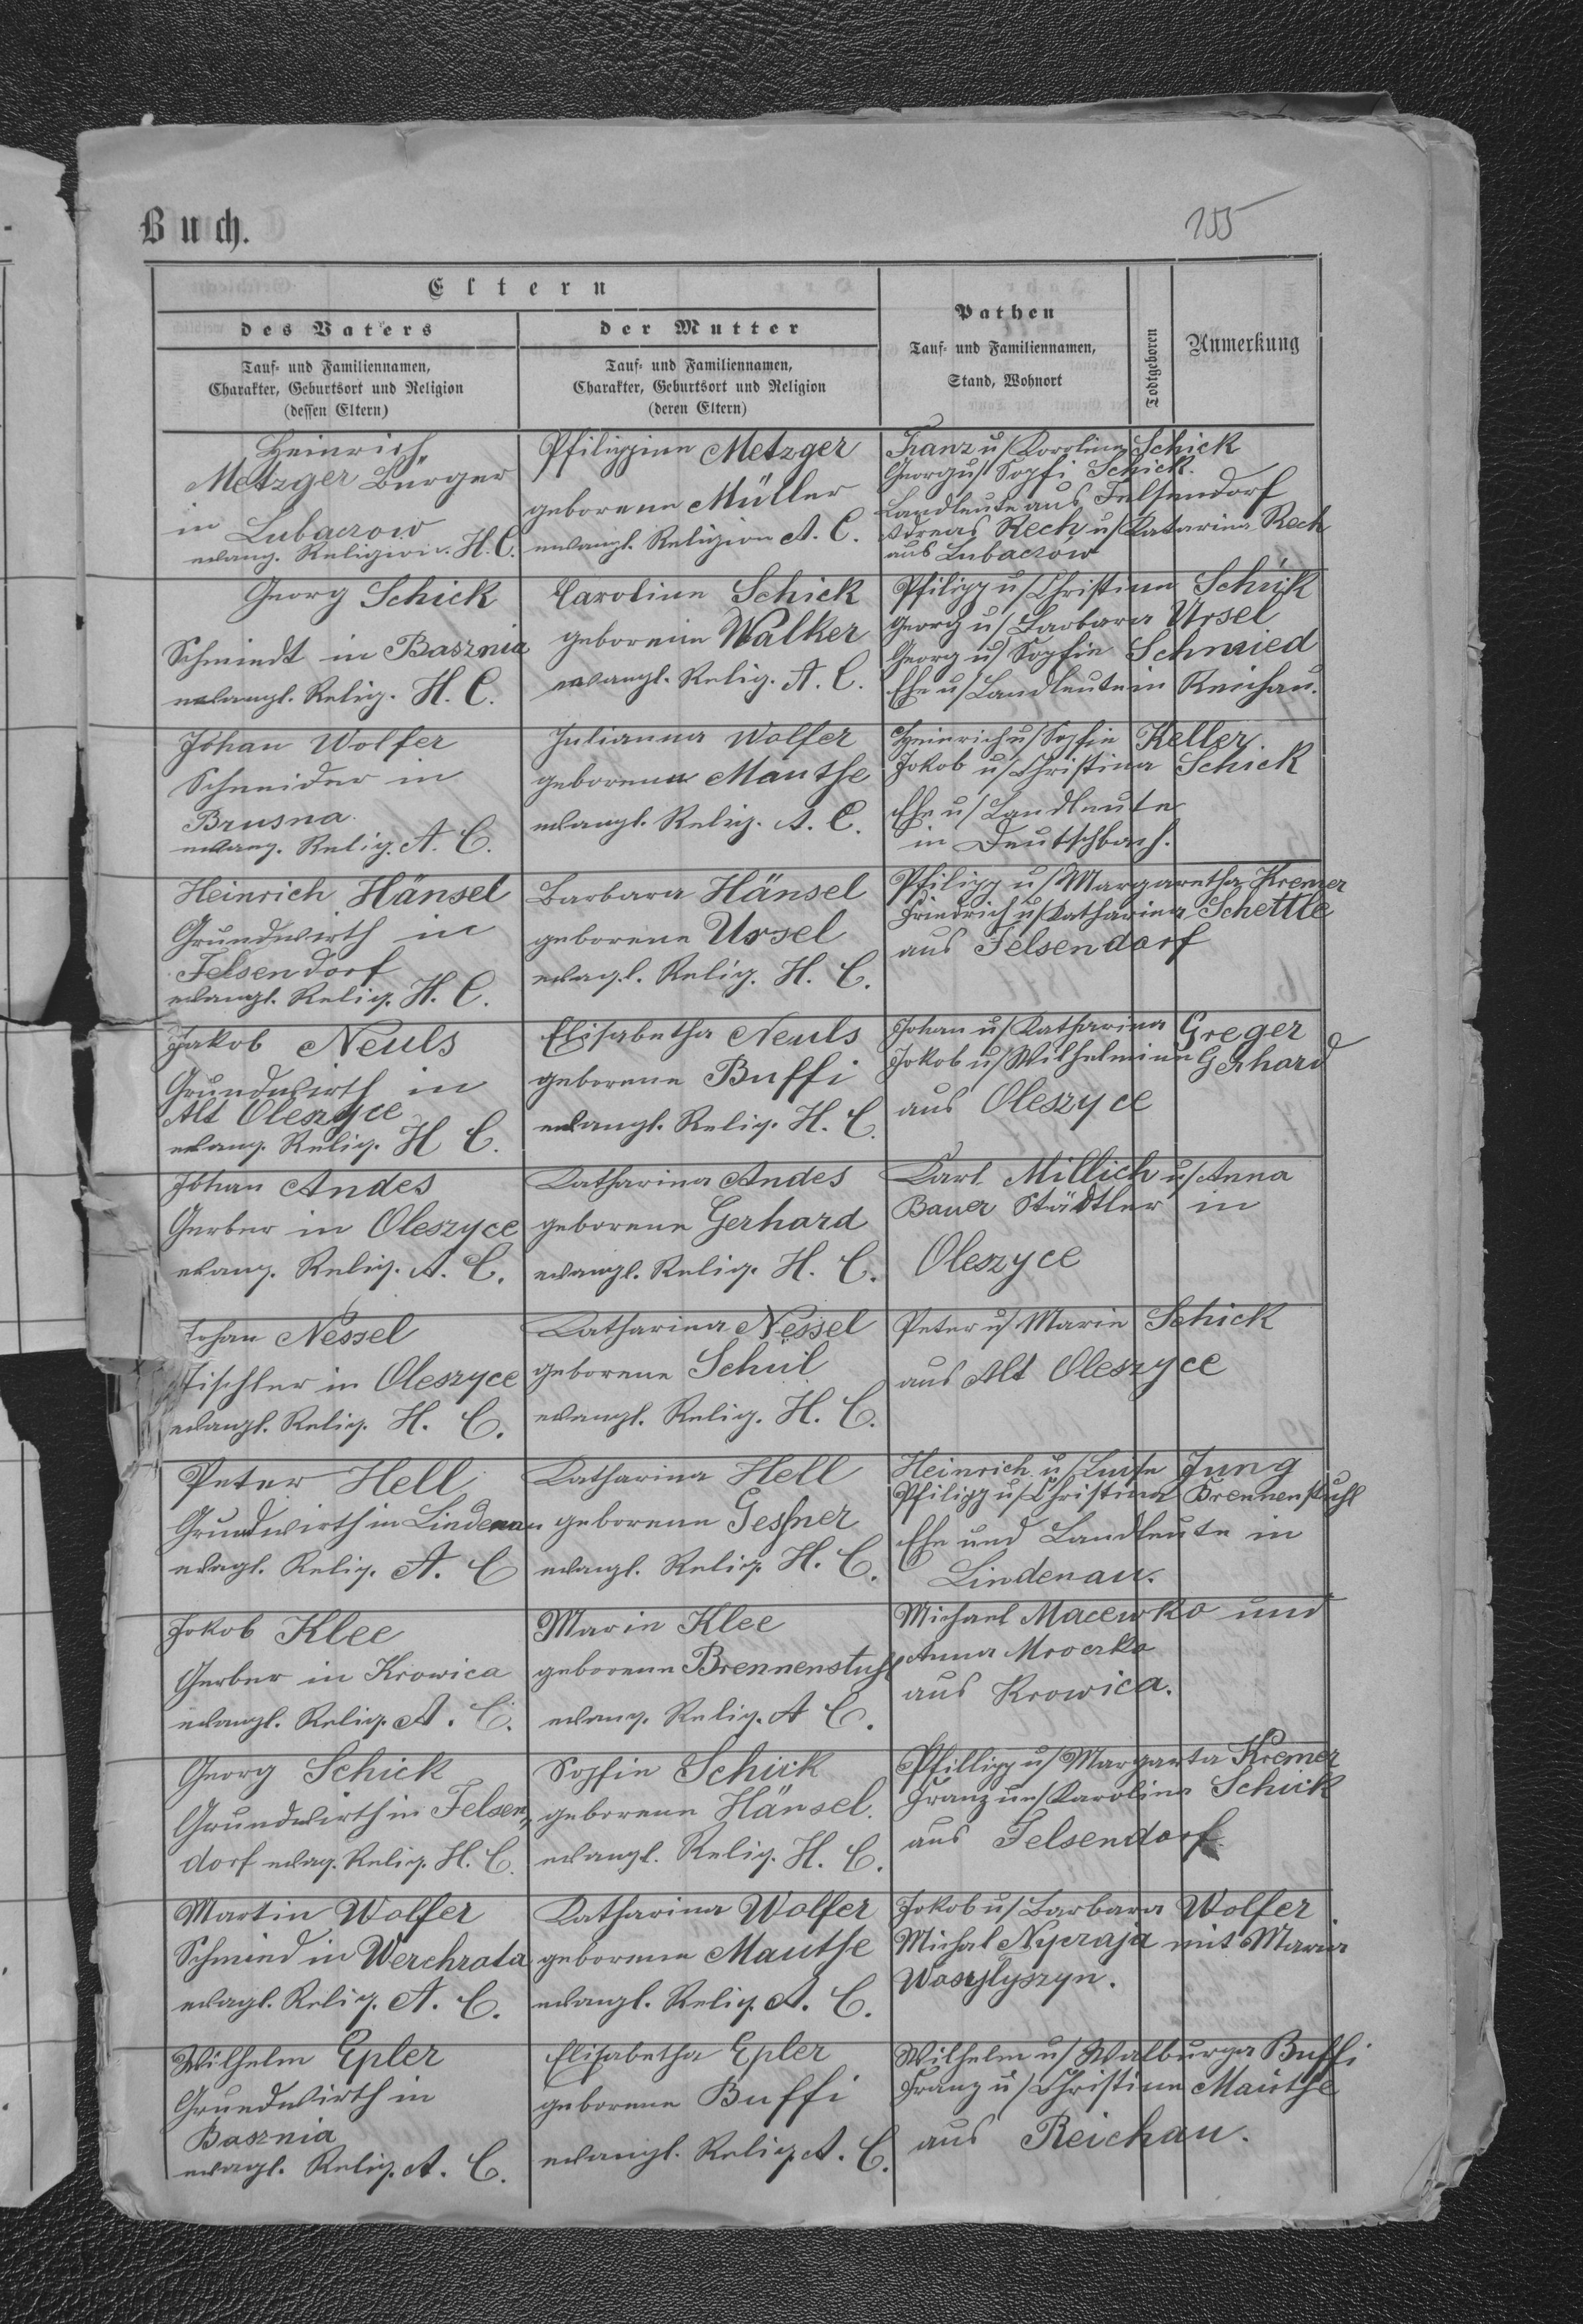 Buch.
155
Eltern
des Vaters
der Mutter
Pathen
Todtgeboren
Anmerkung
Tauf- und Familiennamen,
Charakter, Geburtsort und Religion
(dessen Eltern)
Tauf- und Familiennamen,
Charakter, Geburtsort und Religion
(deren Eltern)
Tauf- und Familiennamen,
Stand, Wohnort
Heinrich
Metzger Bürger
in Lubaczow
evang. Religion. H. C.
Philippine Metzger
geborene Müller
evangl. Religion A. C.
Franz u/ Karolina Schick
Georg u/ Sophi Schick.
Landleute aus Felsendorf
Adreas Rech u/ Katarina Rech
aus Lubaczow
Georg Schick
Schmiedt in Basznia
evangl. Relig. H. C.
Caroline Schick
geborene Walker
evangl. Relig. A. C.
Philipp u/ Christine Schick
Georg u/ Barbara Ursel
Georg u/ Sophie Schmied
Ehe u/ Landleute in Reichau.
Johan Wolfer
Schneider in
Brusna.
evang. Relig. A. C.
Julianna Wolfer
geborene Mauthe
evangl. Relig. A. C.
Heinrich u/ Sophie Keller.
Jakob u/ Christina Schick
Ehe u/ Landleute
in Deutschbach.
Heinrich Hänsel
Grundwirth in
Felsendorf
evangl. Relig. H. C.
Barbara Hänsel
geborene Ursel
evagl. Relig. H. C.
Philipp u/ Margaretha Kremer
Friedrich u/ Katharina Schettle
aus Felsendorf
Jakob Neuls
Grundwirth in
Alt Oleszyce
evang. Relig. H C.
Elisabetha Neuls
geborene Buffi
evangl. Relig. H. C.
Johan u/ Katharina Greger
Jakob u/ Wilhelmine Gerhard
aus Oleszyce
Johan Andes
Gerber in Oleszyce
evang. Relig. A. C.
Katharina Andes
geborene Gerhard
evangl. Relig. H. C.
Karl Millich u/ Anna
Bauer Städtler in
Oleszyce
Johan Nessel
Tischler in Oleszyce
evangl. Relig. H. C.
Katharina Nessel
geborene Schül
evangl. Relig. H. C.
Peter u/ Marie Schick
aus Alt Oleszyce
Peter Hell
Grundwirth in Lindenau
evagl. Relig. A. C
Katharina Hell
geborene Gessner
evangl. Relig. H. C.
Heinrich u/ Luise Jung
Philipp u/ Christina Brennenstuhl
Ehe und Landleute in
Lindenau.
Jakob Klee
Gerber in Krowica
evangl. Relig. A. C.
Marie Klee
geborene Brennenstuhl
evang. Relig. A C.
Michael Macewko und
Anna Mroczko
aus Krowica.
Georg Schick
Grundwirth in Felsen
dorf evag. Relig. H. C.
Sophie Schick
geborene Hänsel.
evangl. Relig. H. C.
Phillipp u/ Margareta Kremer
Franz un/ Karolina Schick
aus Felsendorf.
Martin Wolfer
Schmied in Werchrata
evagl. Relig. A. C.
Katharina Wolfer
geborene Mauthe
evangl. Relig. A. C.
Jakob u/ Barbara Wolfer
Michal mit Maria
Wasylyszyn.
Wilhelm Epler
Grundwirth in
Basznia
evagl. Relig. A. C.
Elisabetha Epler
geborene Buffi
evangl. Relig. A. C.
Wilhelm u/ Walburga Buffi
Franz u/ Christina Mauthe
aus Reichau.